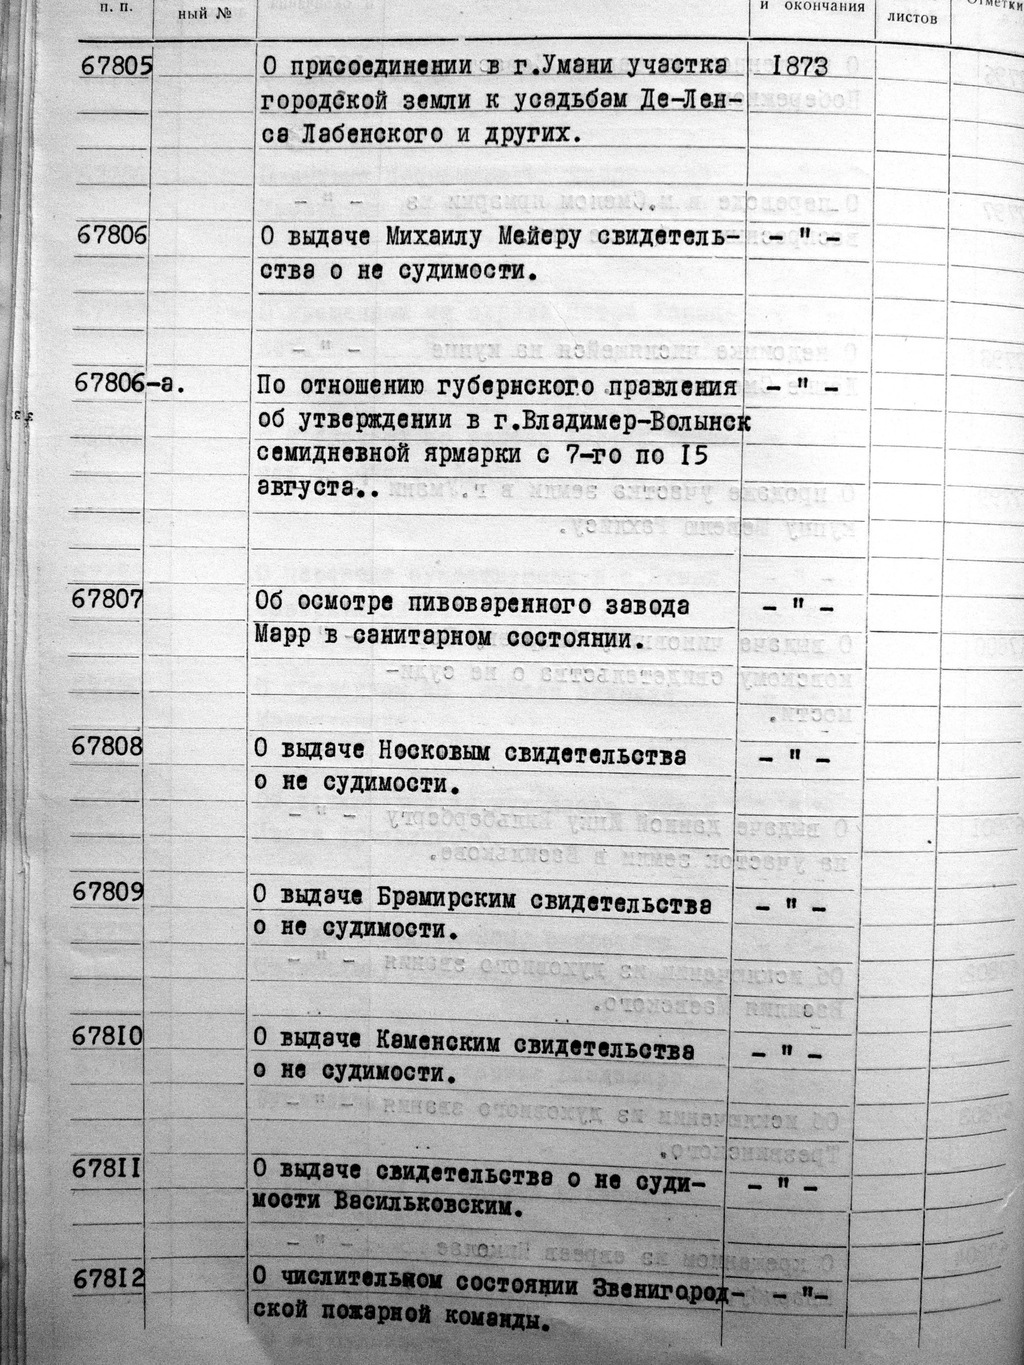 п. п.
ный №
и окончания
листов
Отметки
67805 О присоединении в г.Умани участка 1873
городской земли к усадьбам Де-Лен-
са Лабенского и других.
67806 О выдаче Михаилу Мейеру свидетель- - " -
ства о не судимости.
67806-а. По отношению губернского правления - " -
об утверждении в г.Владимер-Волынск
семидневной ярмарки с 7-го по 15
августа..
67807 Об осмотре пивоваренного завода - " -
Марр в санитарном состоянии.
67808 О выдаче Носковым свидетельства - " -
о не судимости.
67809 О выдаче Брамирским свидетельства - " -
о не судимости.
67810 О выдаче Каменским свидетельства - " -
о не судимости.
67811 О выдаче свидетельства о не суди- - " -
мости Васильковским.
67812 О числительном состоянии Звенигород- - "-
ской пожарной команды.